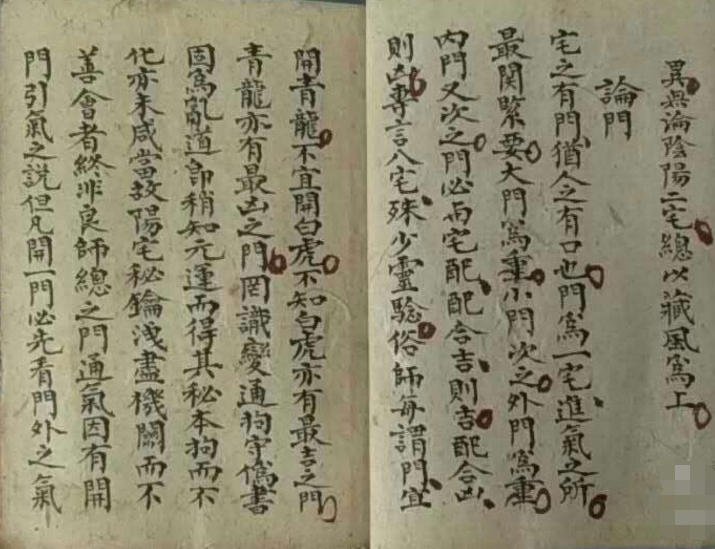 異無論陰陽二宅總以藏風爲上
論門
宅之有門猶人之有口也門爲一宅進氣之所
最関緊要大門爲重小門次之外門爲重
內門又次之門必而宅配配合吉則吉配合凶
則凶專言八宅殊少靈騐俗師每謂門宜
開青龍不宜開白虎不知白虎亦有最吉之門
青龍亦有最凶之門罔識變通拘守僞書
固爲亂道即稍知元運而得其秘本拘而不
化亦未咸當故陽宅秘鑰洩盡機關而不
善會者終非良師總之門通氣因有開
門引氣之說但凡開一門必先看門外之氣